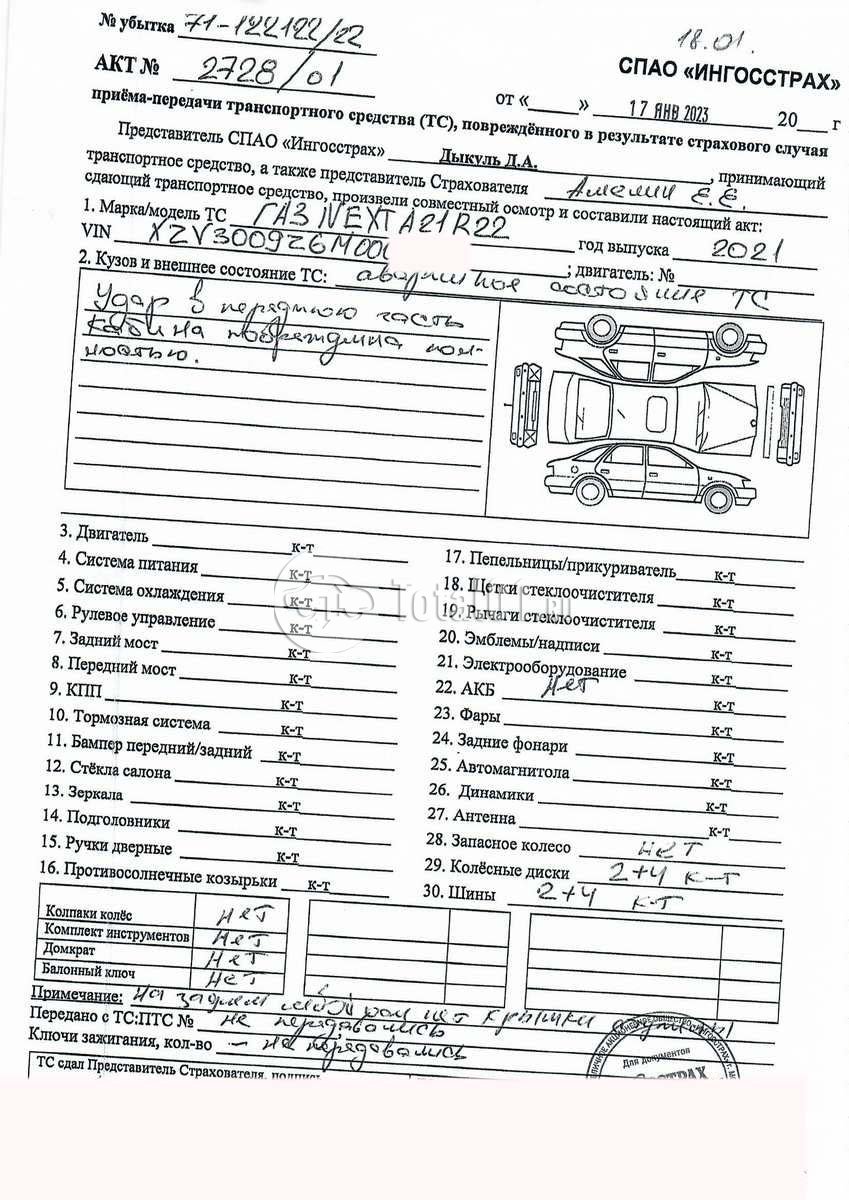 № убытка 71-122122/22
18.01.
АКТ № 2728/01
СПАО «ИНГОССТРАХ»
от «____» 17 ЯНВ 2023 20___ г
приёма-передачи транспортного средства (ТС), повреждённого в результате страхового случая
Представитель СПАО «Ингосстрах» Дыкуль Д.А. , принимающий
транспортное средство, а также представитель Страхователя Е.Е.
сдающий транспортное средство, произвели совместный осмотр и составили настоящий акт:
1. Марка/модель ТС ГАЗ NEXT A21R22
VIN XZV3009Z6M00 год выпуска 2021
; двигатель: №
2. Кузов и внешнее состояние ТС: аварийное состояние ТС
Удар в переднюю часть
кабина повреждена пол-
ностью.
3. Двигатель к-т
4. Система питания к-т
5. Система охлаждения к-т
6. Рулевое управление к-т
7. Задний мост к-т
8. Передний мост к-т
9. КПП к-т
10. Тормозная система к-т
11. Бампер передний/задний к-т
12. Стёкла салона к-т
13. Зеркала к-т
14. Подголовники к-т
15. Ручки дверные к-т
16. Противосолнечные козырьки к-т
17. Пепельницы/прикуриватель к-т
18. Щетки стеклоочистителя к-т
19. Рычаги стеклоочистителя к-т
20. Эмблемы/надписи к-т
21. Электрооборудование к-т
22. АКБ нет
23. Фары к-т
24. Задние фонари к-т
25. Автомагнитола к-т
26. Динамики к-т
27. Антенна к-т
28. Запасное колесо нет
29. Колёсные диски 2+4 к-т
30. Шины 2+4 к-т
Колпаки колёс нет
Комплект инструментов нет
Домкрат нет
Балонный ключ нет
Примечание: на заднем нет крышки
Передано с ТС:ПТС № не передавались
Ключи зажигания, кол-во – не передавались
ТС сдал Представитель Страхователя, подпись
Для документов